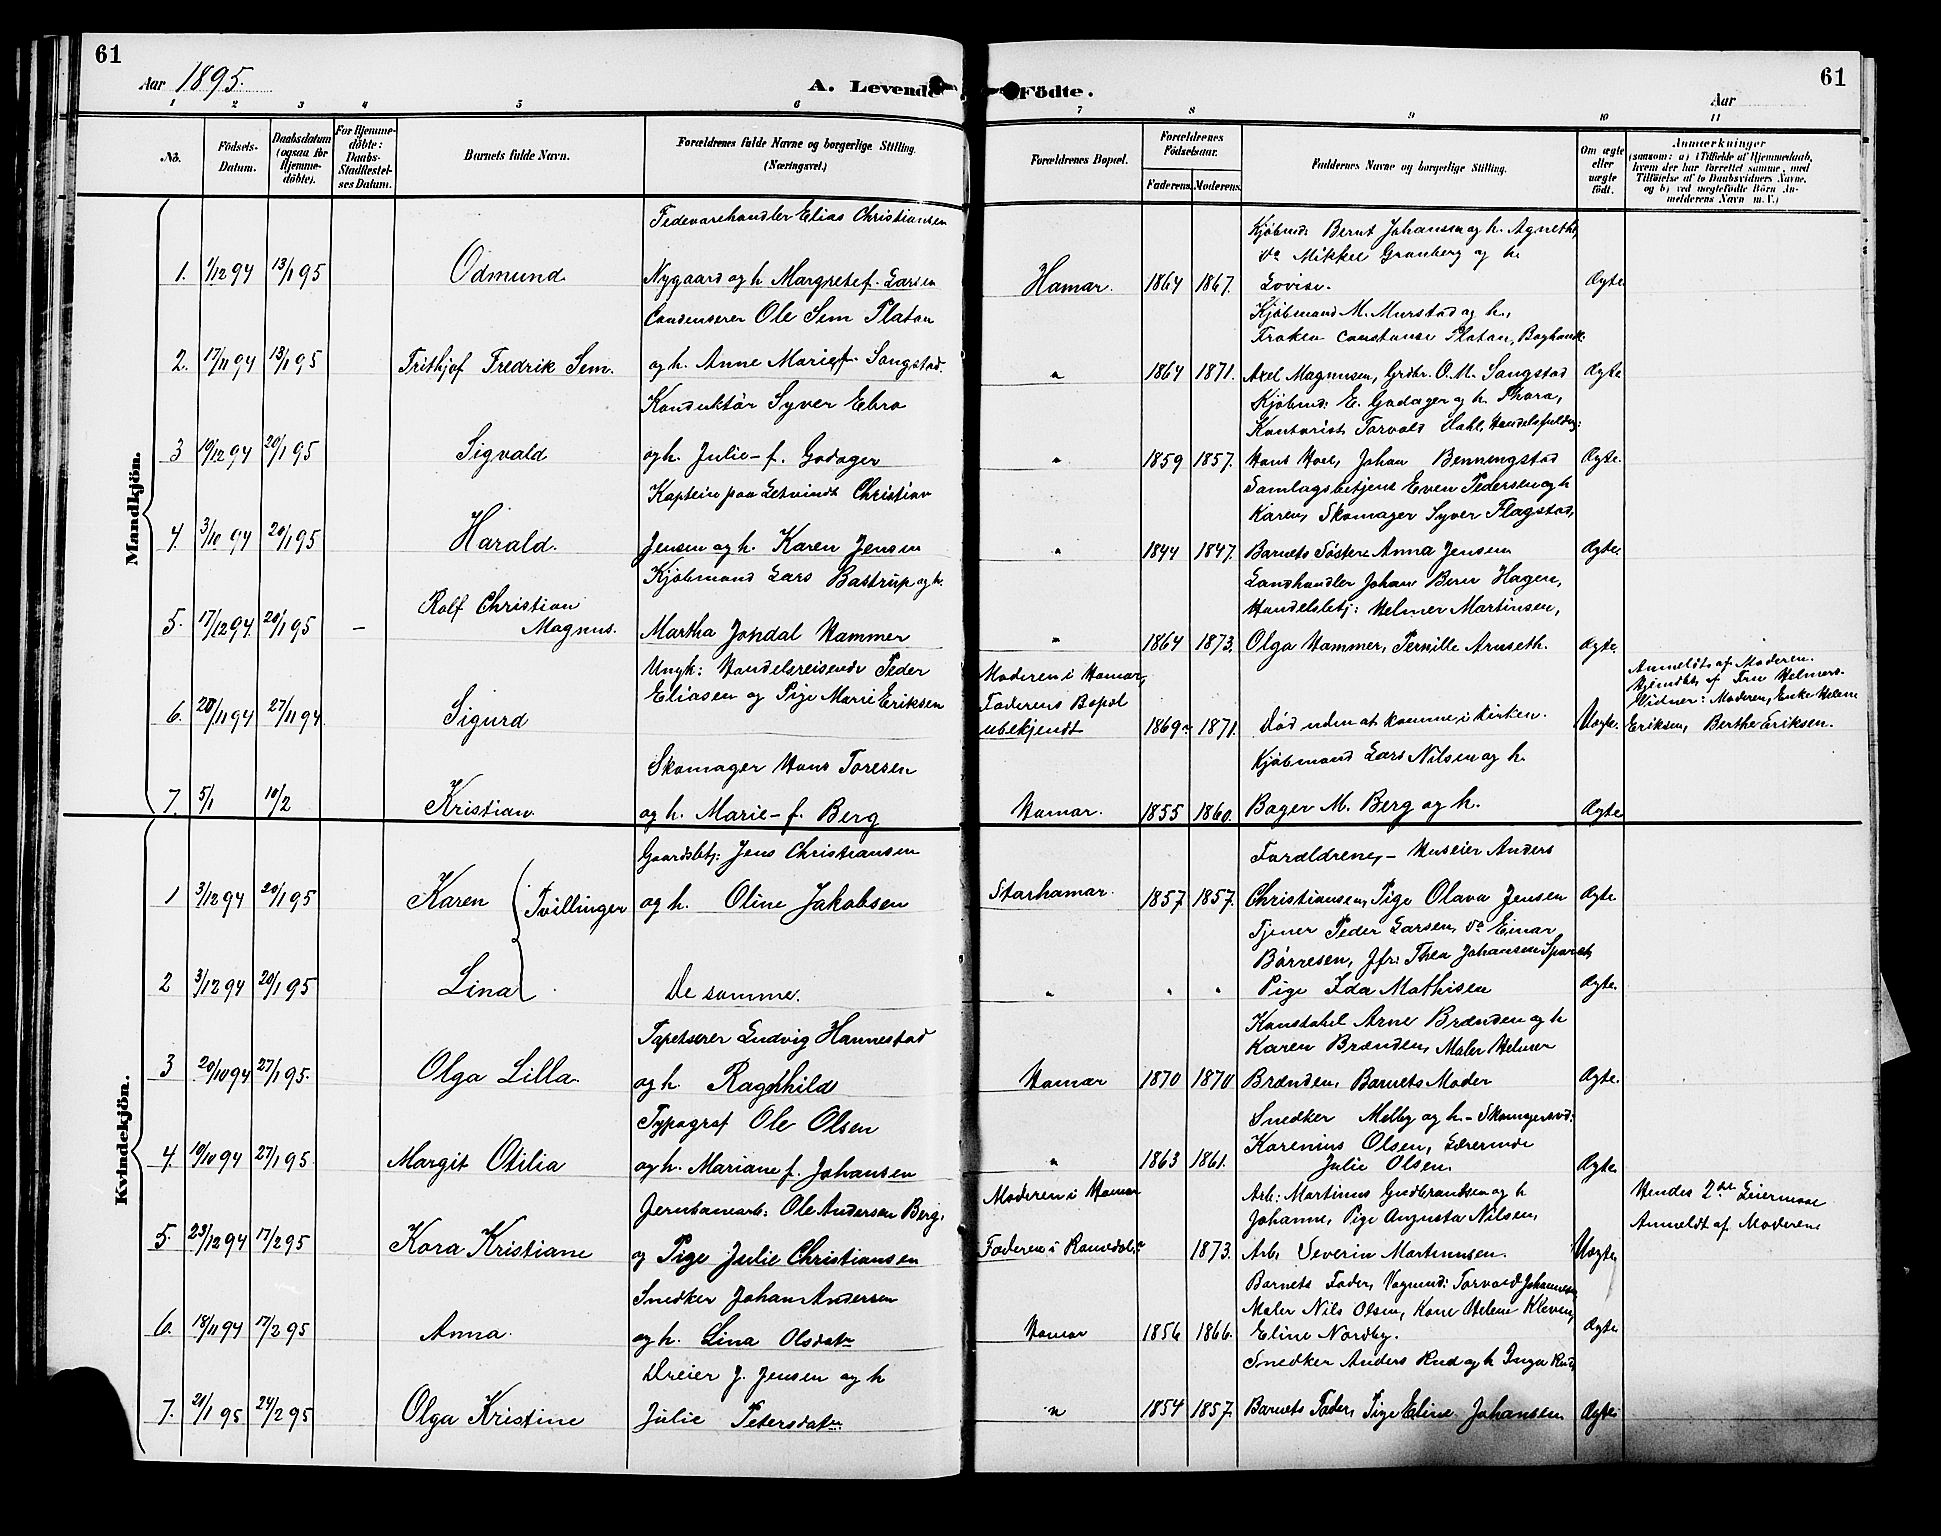 61
Aar 1895.
A. Levende
Födte.
Aar
61
1 2 3 4 5 6 7 8 9 10 11
No. Födsels-Datum. Daabsdatum (ogsaa for Hjemme-döbte). For Hjemme-döbte: Daabs-Stadfæstel-ses Datum. Barnets fulde Navn. Forældrenes fulde Navne og borgerlige Stilling. (Næringsvei.)
Forældrenes Bopæl. Forældrenes Födselsaar. Faderens. Moderens. Faddernes Navne og borgerlige Stilling. Om ægte eller uægte födt. Anmærkninger (saasom: a) i Tilfælde af Hjemmedaab, hvem der har forrettet samme, med Tilföielse af to Daabsvidners Navne, og b) ved uægtefödte Börn An-melderens Navn m. V.)
Mandkjön.
Fedevarehandler Elias Christiansen
1. 1/12 94 13/1 95 Odmund Nygaard og h. Margrete f. Larsen
Hamar. 1864 1867.
Kjøbmd: Bernt Johansen og h. Agnethe,
do Mikkel Granberg og h.
Lovise.
Ægte
Condenserer Ole Sem Platou
2. 17/11 94 13/1 95 Frithjof Fredrik Sem. og h. Anne Marie f. Sangstad.
" 1864 1871.
Kjøbmand M. Murstad og h.,
Frøken Constanse Platou, Boghandl:
Axel Magnusen, Grdbr. O. M. Sangstad
Ægte
Konduktør Syver Ebro
3 19/12 94 20/1 95 Sigvald og h. Julie - f. Godager
" 1859 1857.
Kjøbmd: E. Godager og h. Thora,
Kontorist Torvald Dahl, Handelsfuldm:
Hans Hoel, Johan Benningstad
Ægte.
Kaptein paa Letvindt Christian
4. 3/10 94 20/1 95 Harald. Jensen og h. Karen Jensen
" 1844 1847.
Samlagsbetjent Even Pedersen og h
Karen, Skomager Syver Flagstad,
Barnets Søster Anna Jensen
Ægte
Kjøbmand Lars Bastrup og h.
5. 17/12 94. 20/1 95 - Rolf Christian Magnus. Martha Jondal Hammer
" 1864 1873.
Landhandler Johan Bern Hagen,
Handelsbetj: Helmer Martinsen,
Olga Hammer, Pernille Arnseth.
Ægte.
Ungk: Handelsreisende Peder
6. 20/11 94 27/11 94 Sigurd Eliasen og Pige Marie Eriksen
Moderen i Hamar,
Faderens Bopæl
ubekjendt
1869 1871.
Død uden at komme i Kirken.
Uægte.
Anmeldt af Moderen.
Hjemdbt. af Fru Helmers.
Vidner: Moderen, Enke Helene
Eriksen, Berthe Eriksen.
Skomager Hans Toresen
7. 5/1 10/2 Kristian. og h. Marie - f. Berg
Hamar. 1855 1860.
Kjøbmand Lars Nilsen og h.
Bager M. Berg og h.
Ægte
Kvindekjön.
Gaardsbetj: Jens Christiansen
1 3/12 94 20/1 95 Karen Tvillinger og h. Oline Jakobsen
Storhamar. 1857 1857.
Forældrene, - Huseier Anders
Christiansen, Pige Olava Jensen
Ægte
2 3/12 94 20/1 95 Lina De samme.
" " "
Tjener Peder Larsen, do Einar
Børresen, Jfr: Thea Johansen
Pige Ida Mathisen
Ægte.
Tapetserer Ludvig Hannestad
3 20/10 94 27/1 95. Olga Lilla. og h. Ragnhild
Hamar 1870 1870
Konstabel Arne Brænden og h
Karen Brænden, Maler Helmer
Brænden, Barnets Moder
Ægte.
Typograf Ole Olsen
4. 19/10 94 27/1 95. Margit Otilia og h. Mariane f. Johansen
" 1863 1861.
Snedker Melby og h. - Skomagersvd:
Karenius Olsen, Lærerinde
Julie Olsen.
Ægte
Jernbanearb: Ole Andersen Berg.
5. 23/12 94 17/2 95 Kora Kristiane og Pige Julie Christiansen
Moderen i Hamar
Faderen i Romsdal
1873.
Arb: Martinus Gudbrandsen og h
Johanne, Pige Augusta Nilsen,
Arb. Severin Martinusen.
Uægte
Hendes 2det Leiermaal
Anmeldt af Moderen
Snedker Johan Andersen
6. 18/11 94 17/2 95 Anna. og h. Lina Olsdatr
Hamar 1856 1866.
Barnets Fader, Vognmd: Torvald Johannesen
Maler Nils Olsen, Kone Helene Kleven,
Eline Nordby.
Ægte
Dreier J. Jensen og h
7. 21/1 95 24/2 95 Olga Kristine Julie Petersdatr
" 1854 1857.
Snedker Anders Rud og h Inga Rud,
Barnets Fader, Pige Eline Johansen
Ægte